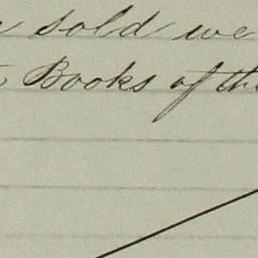 sold we
Books of the